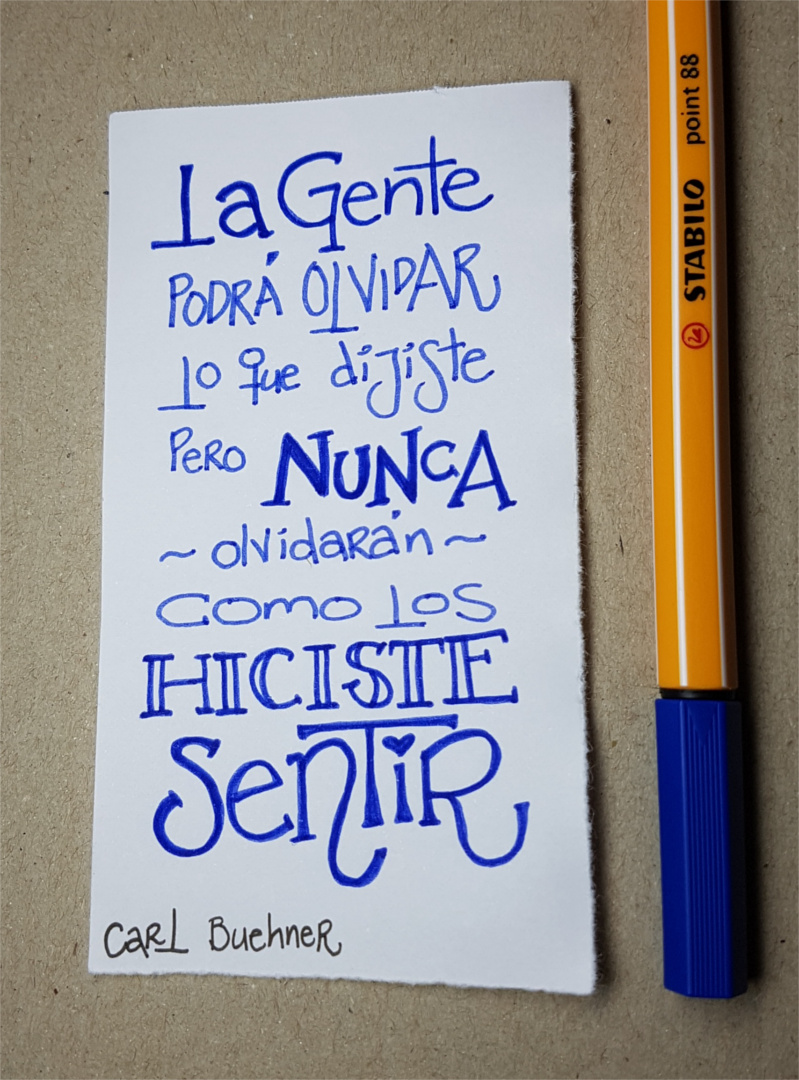 La Gente
PODRÁ OLVIDAR
Lo que dijiste
PERO NUNCA
~ olvidarán ~
COMO LOS
HICISTE
SenTiR
CARL BuehneR
STABILO point 88